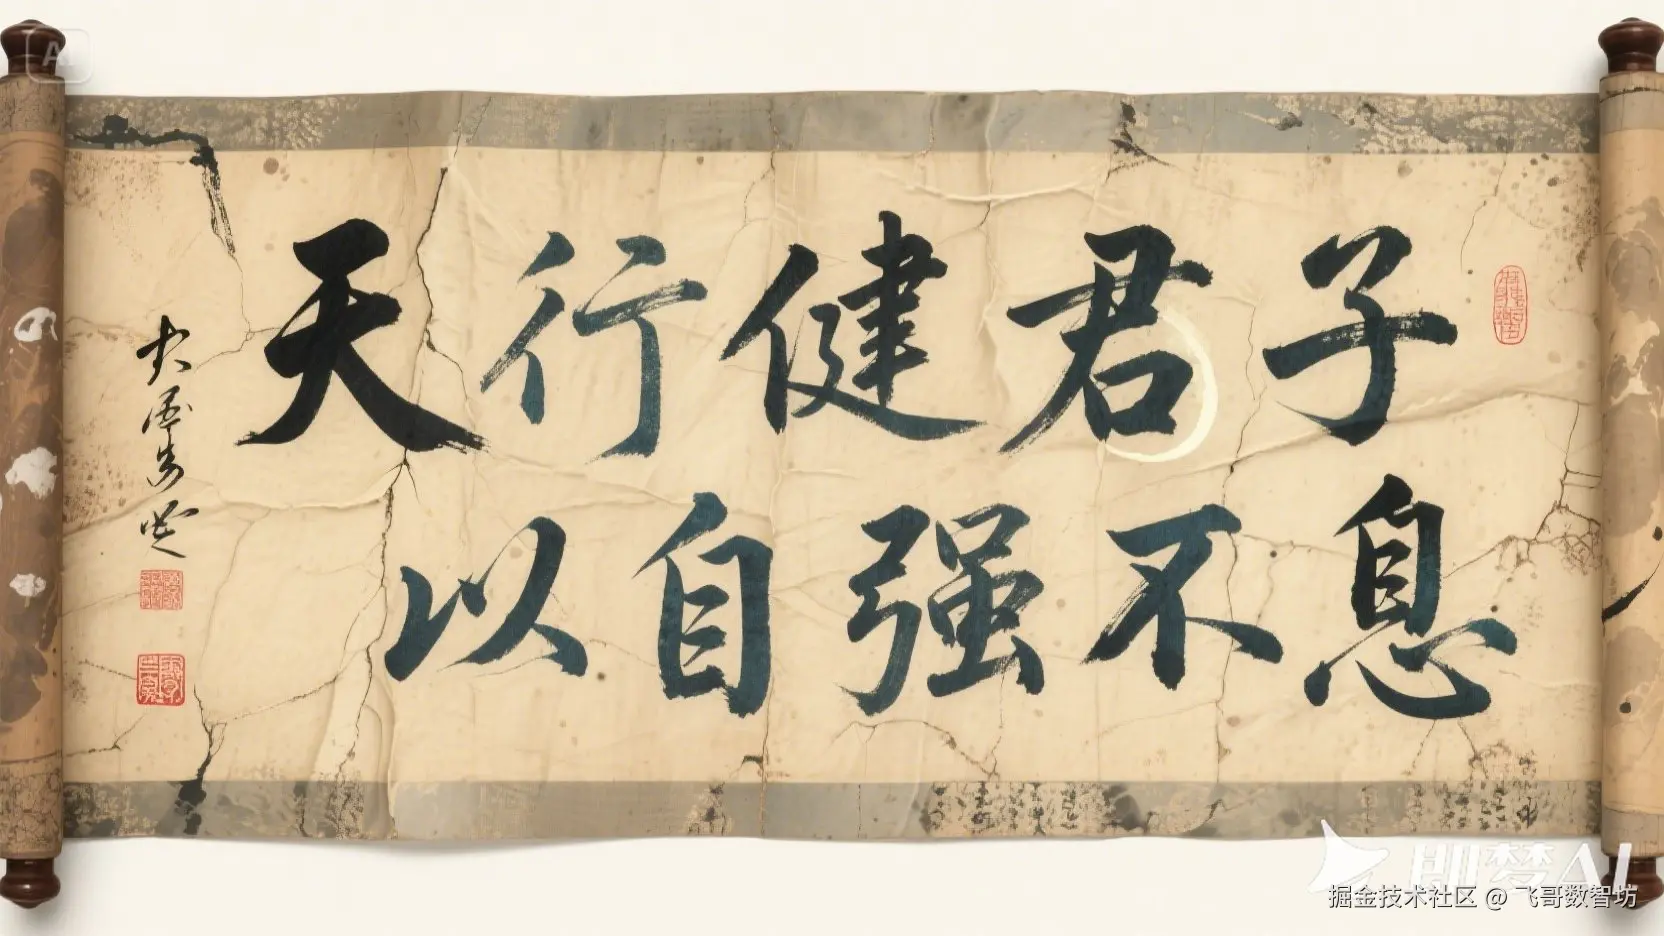 天行健君子
以自强不息
即梦AI
掘金技术社区 @ 飞哥数智坊